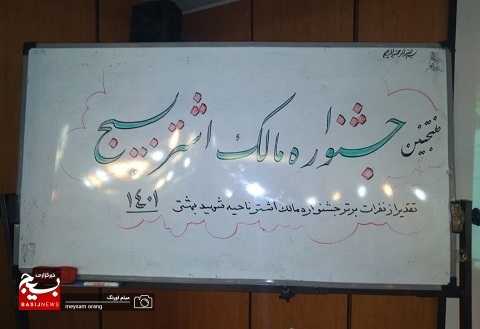 بسم الله الرحمن الرحیم
هفتمین جشنواره مالک اشتر بسیج
تقدیر از نفرات برتر جشنواره مالک اشتر ناحیه شهید بهشتی ۱۴۰۱
خبرگزاری
بسیج
BASIJNEWS
میثم اورنگ
meysam orang